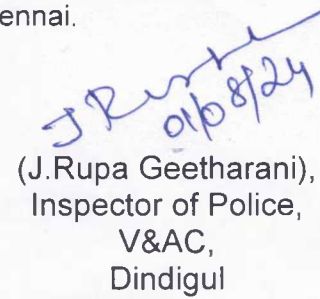 ennai.
J Rupa
01/08/24
(J.Rupa Geetharani),
Inspector of Police,
V&AC,
Dindigul